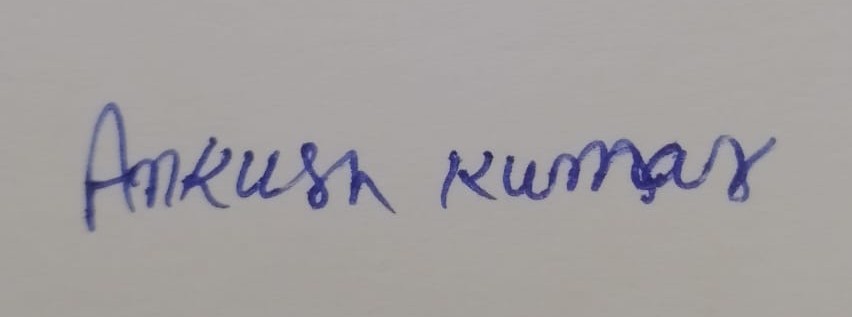 Ankush Kumar